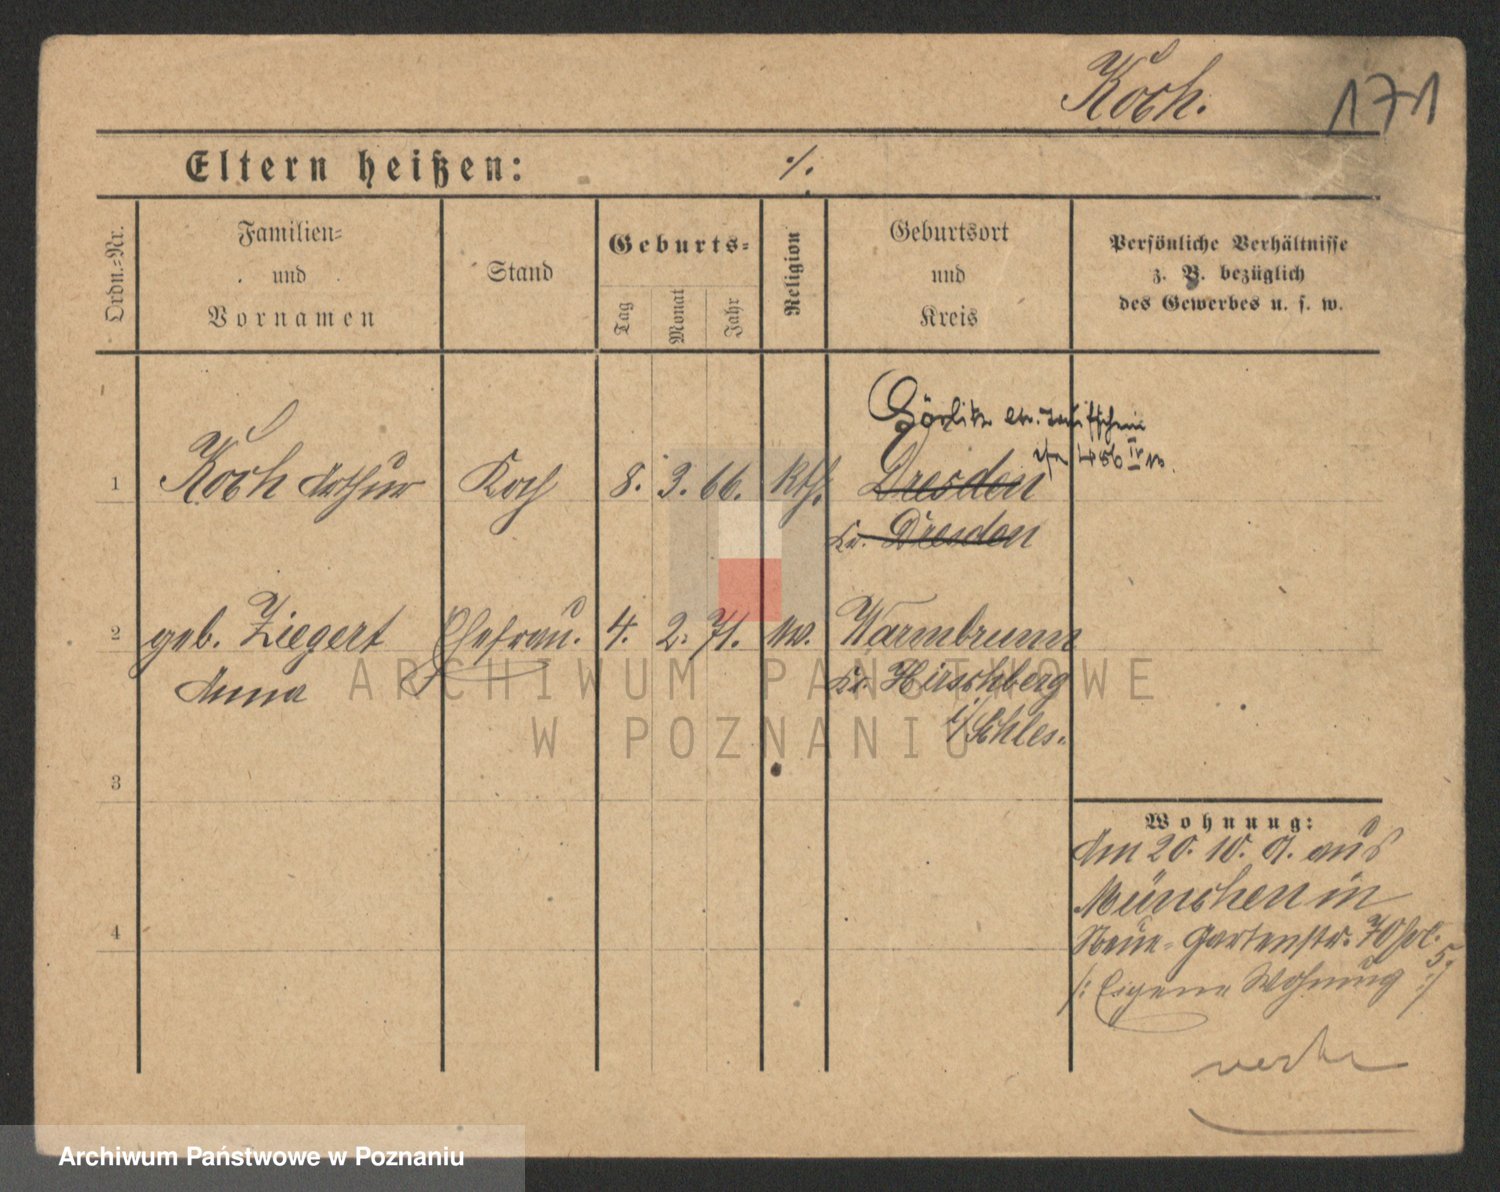 Koch.
171
Eltern heißen: ·/.
Ordn.-Nr.
Familien-
und
Vornamen
Stand
Geburts-
Tag
Monat
Jahr
Religion
Geburtsort
und
Kreis
Persönliche Verhältnisse
z. B. bezüglich
des Gewerbes u. s. w.
Görlitz
1 Koch Arthur Koch 8. 3. 66. Kth. Dresden
Kr. Dresden
2 geb. Ziegert Ehefrau. 4. 2. 71. Warmbrunn
Anna Kr. Hirschberg
i/Schles.
3
4
Wohnung:
Am 20. 10. 9. aus
München in
Neue-Gartenstr. 70
/: Eigene Wohnung :/
ARCHIWUM PAŃSTWOWE
W POZNANIU
Archiwum Państwowe w Poznaniu